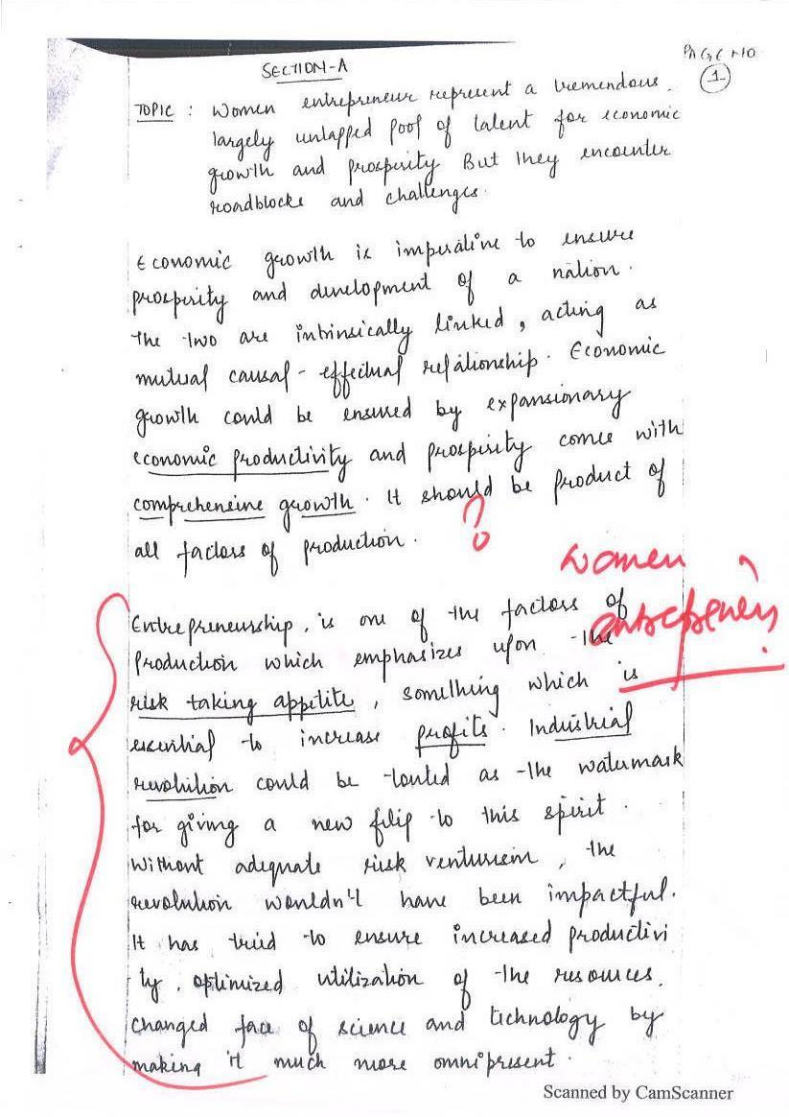 PAGE NO
1
SECTION-A
TOPIC : Women entrepreneur represent a tremendous.
largely untapped pool of talent for economic
growth and prosperity But they encounter
roadblocks and challenges.
Economic growth is imperative to ensure
prosperity and development of a nation.
The two are intrinsically linked, acting as
mutual causal - effectual relationship. Economic
growth could be ensured by expansionary
economic productivity and prosperity comes with
comprehensive growth. It should be product of
all factors of production.
?
women
entrepreneurs
Entrepreneurship, is one of the factors of
production which emphasizes upon the
risk taking appetite, something which is
essential to increase profits. Industrial
revolution could be touted as the watermark
for giving a new filip to this spirit.
Without adequate risk venturism, the
revolution wouldn't have been impactful.
It has tried to ensure increased productivi
ty, optimized utilization of the resources,
changed face of science and technology by
making it much more omnipresent.
Scanned by CamScanner